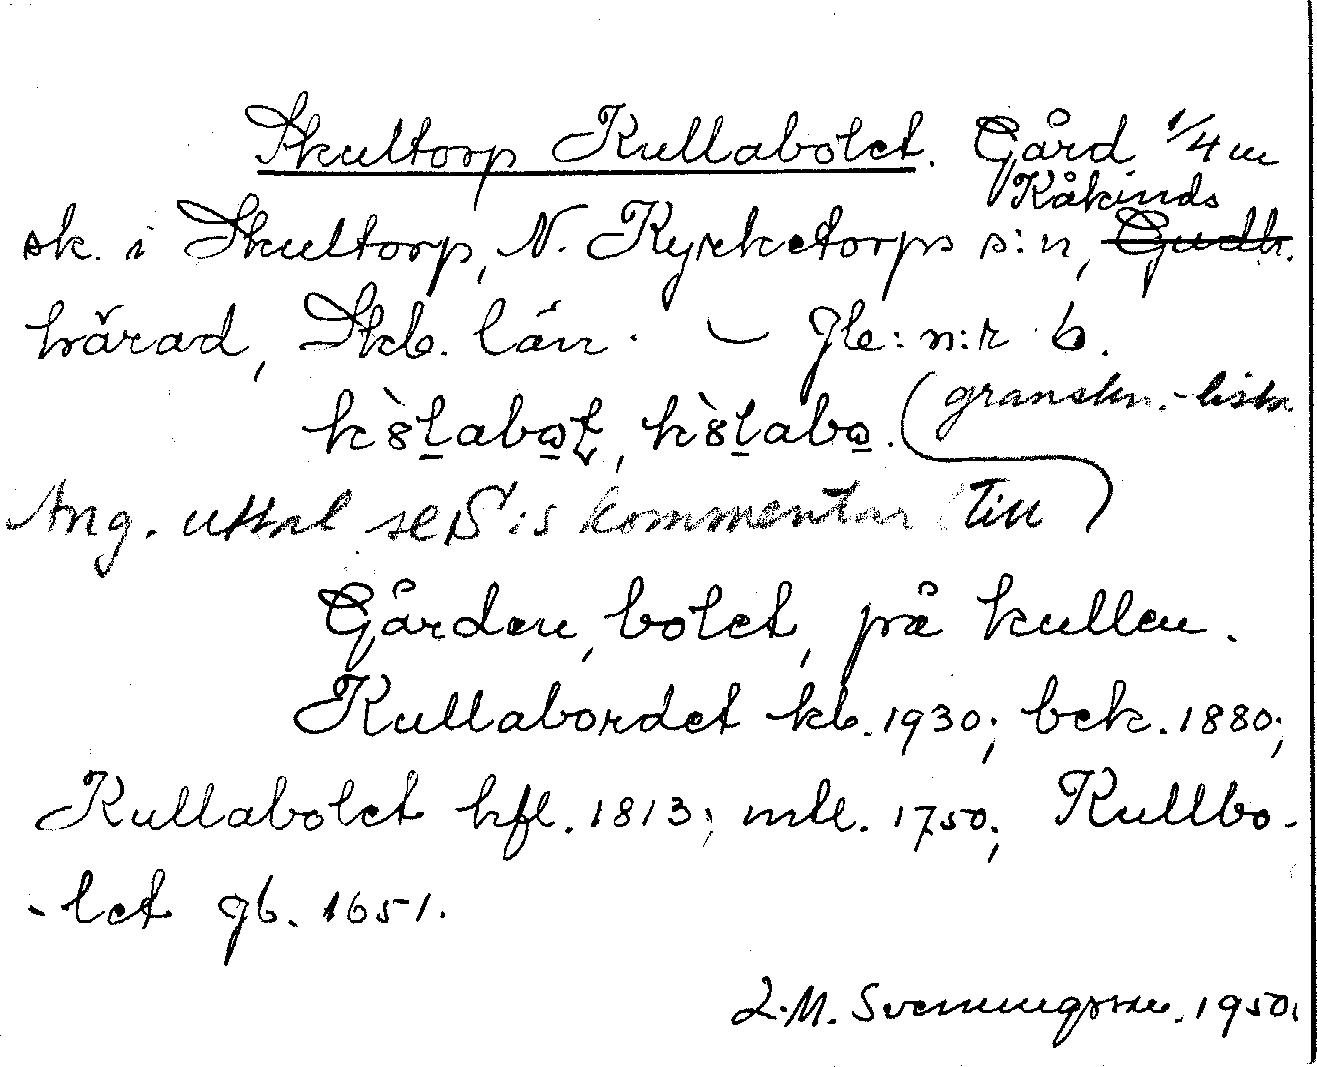 Skultorp Kullabolet. Gård 1/4 m
Kåkinds
sk. i Skultorp, N. Kyrketorps s:n, Gudh.
härad, Skb. län. – Jbe: n:r 6.
k`8labot, k`8labo. (granskn.-listn
Ang. uttal se S:s kommentar till)
Gården, bolet, på kullen.
Kullabordet kb. 1930; bek. 1880;
Kullabolet hfl. 1813; mtl. 1750; Kullbo-
-let gb. 1651.
L.M. Svenningsson. 1950.